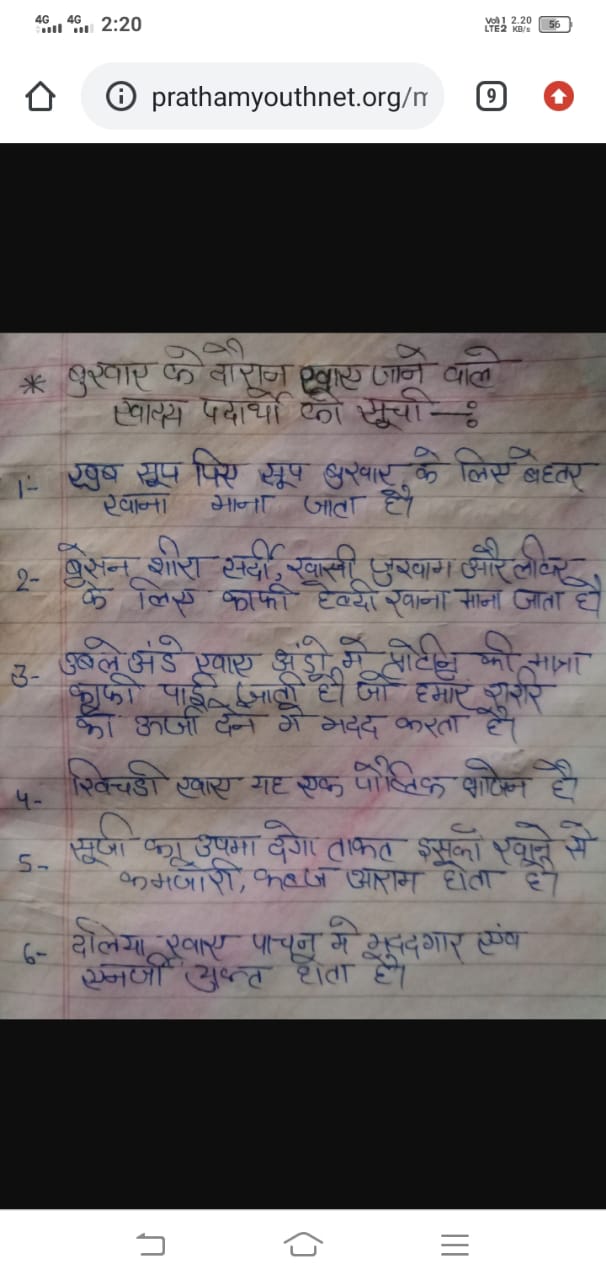 4G 4G 2:20 Vo) 1 2.20 LTE2 KB/s 56
prathamyouthnet.org/m 9
* बुखार के दौरान खाए जाने वाले
खाद्य पदार्थो की सूची -:
1- खुब सूप पिए सूप बुखार के लिए बेहतर
खाना माना जाता है।
2- बेसन शीरा सर्दी, खासी जुखाम और लीवर
के लिए काफी हेल्दी खाना माना जाता है
3- उबले अंडे खाए अंडो मे प्रोटीन की मात्रा
काफी पाई जाती है। जो हमारे शरीर
को ऊर्जा देने मे मदद करता है।
4- खिचडी खाए यह एक पौष्टिक भोजन है
5- सूजी का उपमा देगा ताकत इसको खाने से
कमजोरी, कब्ज आराम होता है।
6- दलिया खाए पाचन मे मददगार एंव
एनर्जी युक्त होता है।